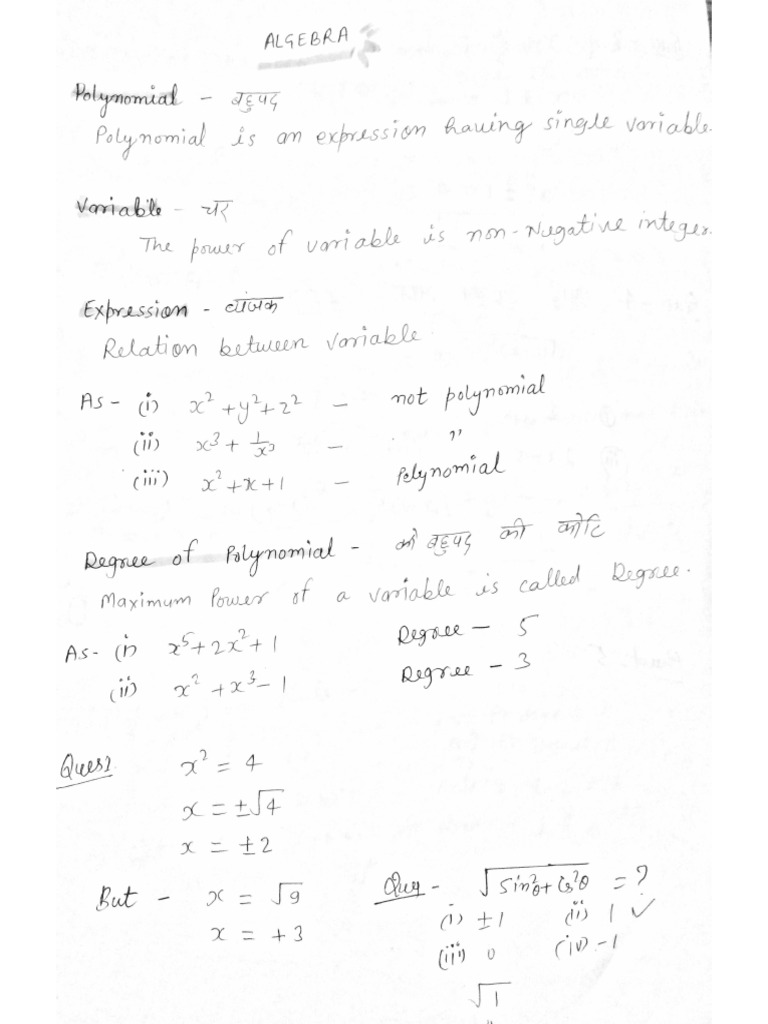 ALGEBRA
Polynomial - बहुपद
Polynomial is an expression having single variable.
Variable - चर
The power of variable is non-Negative integer.
Expression - व्यंजक
Relation between variable
As - (i) x² + y² + z² - not polynomial
(ii) x³ + 1/x³ - "
(iii) x² + x + 1 - Polynomial
Degree of Polynomial - बहुपद की कोटि
Maximum Power of a variable is called Degree.
As - (i) x⁵ + 2x² + 1 Degree - 5
(ii) x² + x³ - 1 Degree - 3
Ques1 x² = 4
x = ±√4
x = ±2
But - x = √9
x = +3
Ques - √(Sin²θ + Cos²θ) = ?
(i) ±1 (ii) 1 ✓
(iii) 0 (iv) -1
√1